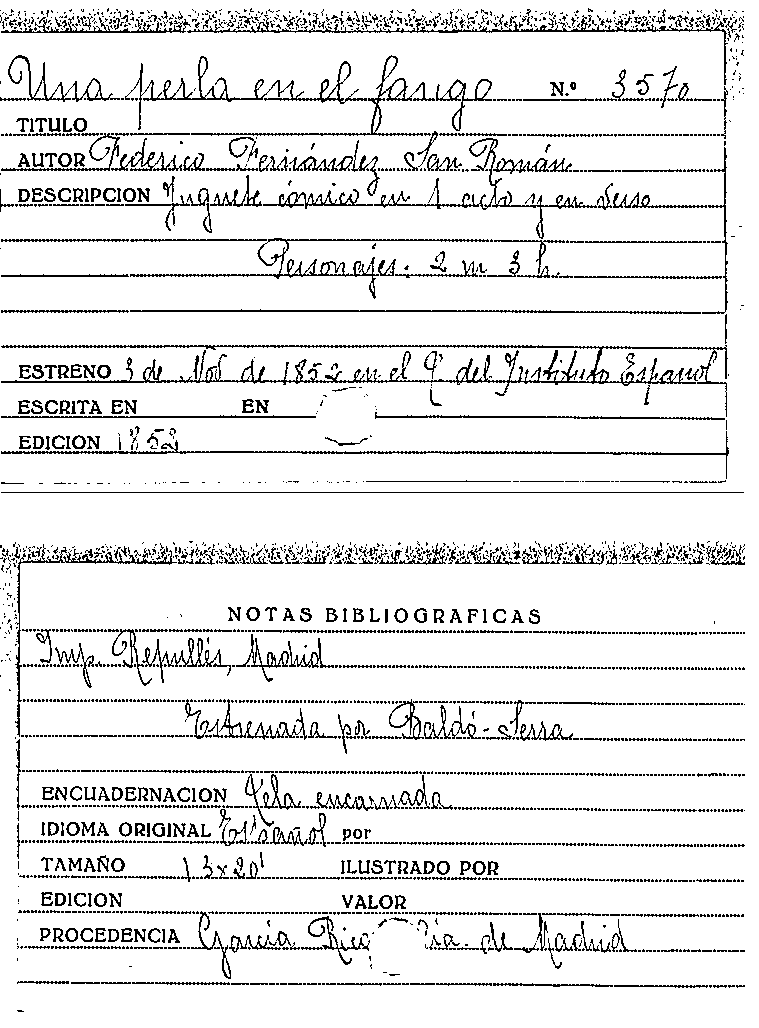 Una perla en el fango N.º 3570
TITULO
AUTOR Federico Fernández San Román
DESCRIPCION Juguete cómico en 1 acto y en verso
Personajes: 2 m 3 h.
ESTRENO 3 de Nov de 1852 en el T. del Instituto Español
ESCRITA EN EN
EDICION 1852
NOTAS BIBLIOGRAFICAS
Imp. Repullés, Madrid
Estrenada por Baldó-Serra
ENCUADERNACION Tela encarnada
IDIOMA ORIGINAL Español por
TAMAÑO 13x20' ILUSTRADO POR
EDICION VALOR
PROCEDENCIA García Rico de Madrid